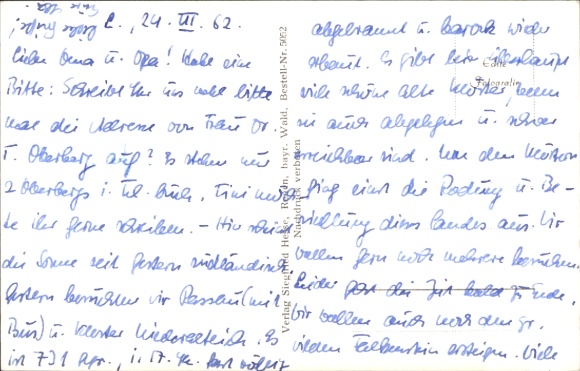 24. III. 62.
Liebe Oma u. Opa! Habe eine
Bitte: Schreibt Ihr uns wohl bitte
mal die Adresse von Frau Dr.
T. Oberberg auf? Es stehen nur
2 Oberbergs i. Tel. buch, Tini möch-
te ihr gerne schreiben. – Hier scheint
die Sonne seit gestern südländisch
gestern besuchten wir Passau (mit
Bus) u. Kloster Niederalteich. Es
ist 731 gegr., i. 17. Jh.
abgebrannt u. barock wieder
erbaut. Es gibt hier überhaupt
viele schöne alte Klöster, wenn
sie auch abgelegen u. schwer
erreichbar sind. Von den Klöstern
ging einst die Rodung u. Be-
siedlung dieses Landes aus. Wir
wollen gern noch mehrere besuchen.
Leider geht die Zeit bald z. Ende,
wir wollen auch noch den gr.
Falkenstein ersteigen. Viele
Echte
Fotografie
Verlag Siegfried Hesse, Regen, bayr. Wald. Bestell-Nr. 5052
Nachdruck verboten